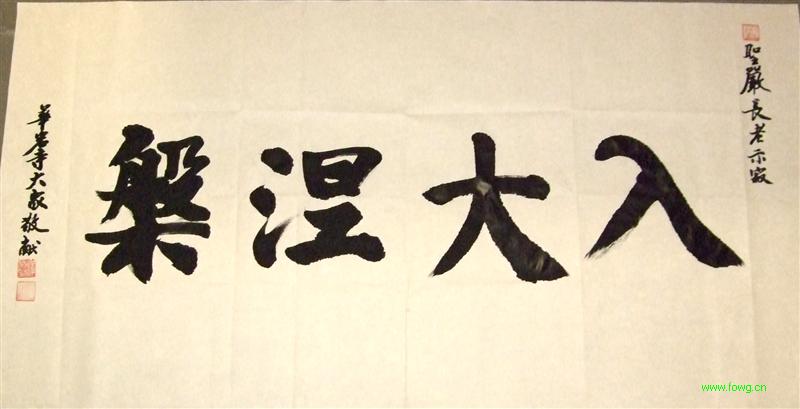 聖嚴長老示寂
入大涅槃
華岩寺大象敬獻
www.fowg.cn